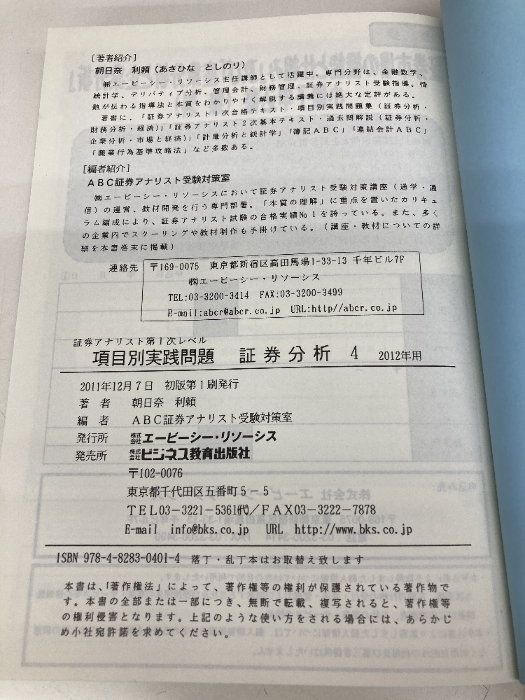 ［著者紹介］
朝日奈 利頼（あさひな としのり）
㈱エービーシー・リソーシス主任講師として活躍中。専門分野は、金融数学、
統計学、デリバティブ分析、管理会計、財務管理。証券アナリスト受験指導。情
熱が伝わる指導法と本質をわかりやすく解説する講義には絶大な定評がある。
著書に、「証券アナリスト1次合格テキスト・項目別実践問題集（証券分析・
財務分析・経済）」「証券アナリスト2次基本テキスト・過去問解説（証券分析・
企業分析・市場と経済）」「計量分析と統計学」「簿記ＡＢＣ」「連結会計ＡＢＣ」
「職業行為基準攻略法」など多数ある。
［編者紹介］
ＡＢＣ証券アナリスト受験対策室
㈱エービーシー・リソーシスにおいて証券アナリスト受験対策講座（通学・通
信）の運営、教材開発を行う専門部署。「本質の理解」に重点を置いたカリキュ
ラム編成により、証券アナリスト試験の合格実績No１を誇っている。また、多く
の企業内でスクーリングや教材制作も手掛けている。（講座・教材についての詳
細を本書巻末に掲載）
連絡先 〒169-0075 東京都新宿区高田馬場1-33-13 千年ビル7F
㈱エービーシー・リソーシス
TEL:03-3200-3414 FAX:03-3200-3499
E-mail:abcr@abcr.co.jp URL:http//abcr.co.jp
証券アナリスト第１次レベル
項目別実践問題 証券分析 4 2012年用
2011年12月7日 初版第1刷発行
著者 朝日奈 利頼
編者 ＡＢＣ証券アナリスト受験対策室
発行所 株式会社エービーシー・リソーシス
発売所 株式会社ビジネス教育出版社
〒102-0076
東京都千代田区五番町５－５
ＴＥＬ03-3221-5361㈹／ＦＡＸ03-3222-7878
E-mail info@bks.co.jp URL http://www.bks.co.jp
ISBN 978-4-8283-0401-4 落丁・乱丁本はお取替え致します
本書は、「著作権法」によって、著作権等の権利が保護されている著作物で
す。本書の全部または一部につき、無断で転載、複写されると、著作権等
の権利侵害となります。上記のような使い方をされる場合には、あらかじ
め小社宛許諾を求めてください。